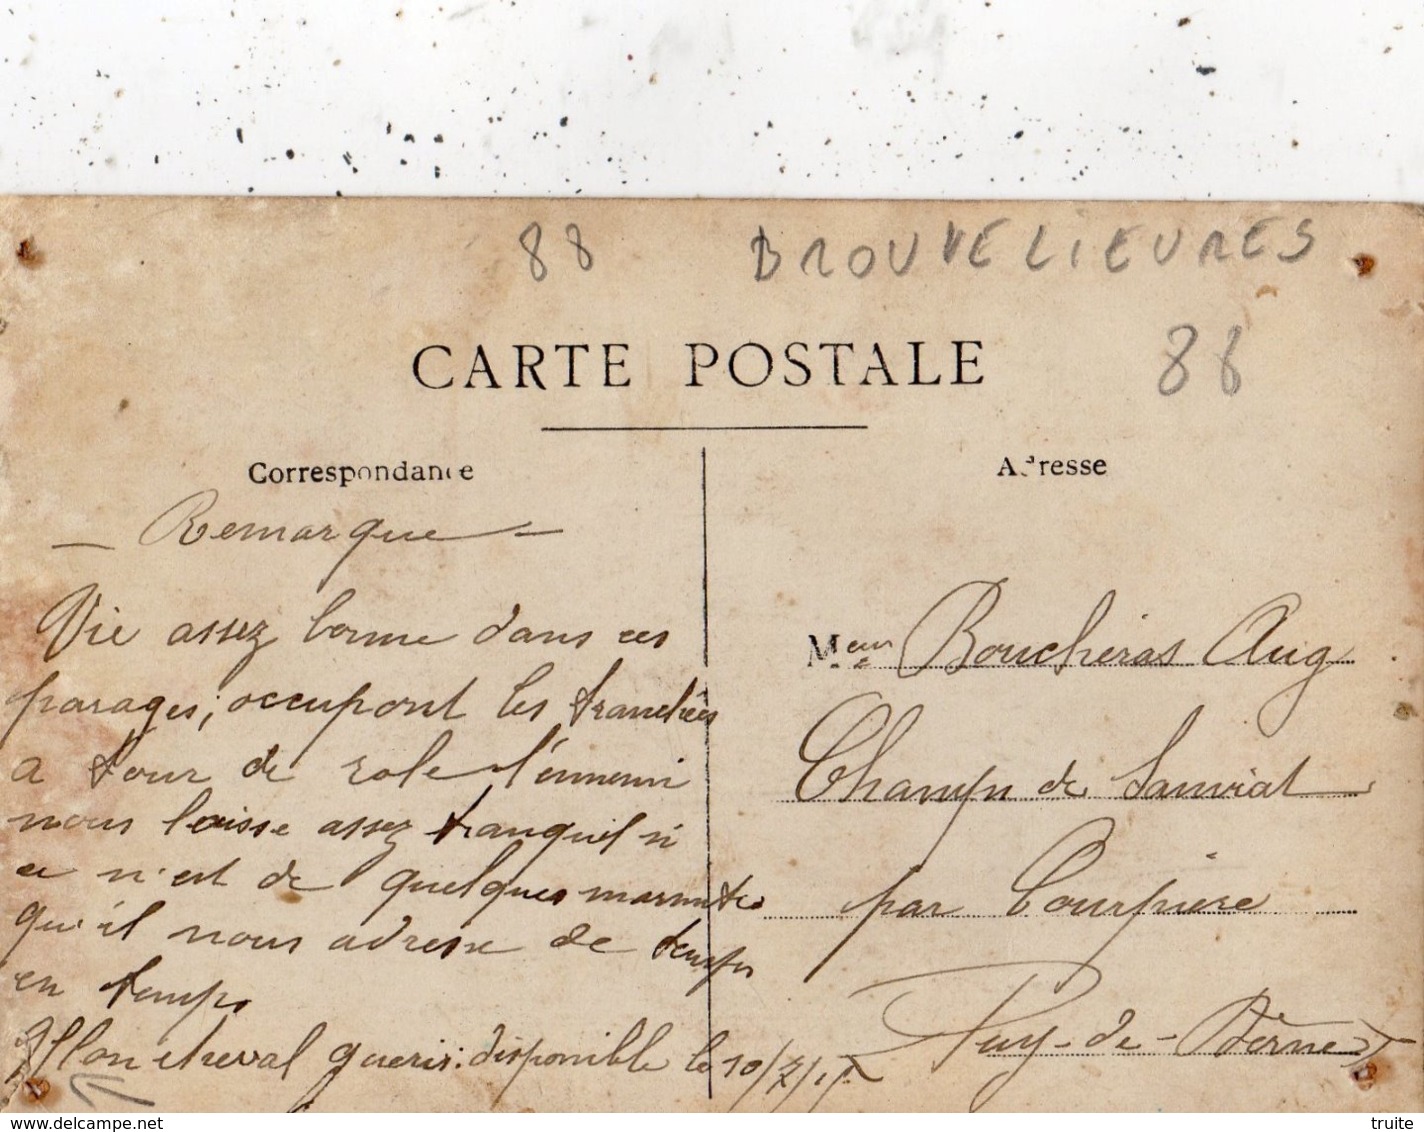 88 BROUVELIEURES
88
CARTE POSTALE
Correspondance
Adresse
— Remarque —
Vie assez bonne dans ces
parages, occupont les tranchées
a tour de role l'ennemi
nous laisse assez tranquil si
ce n'est de quelques marmites
qu'il nous adresse de temps
en temps
Mon cheval gueris. disponible le 10/7/15
Meur Boucheras Aug
Champ de Sauviat
par Courpière
Puy-de-Dôme
delcampe.net
truite